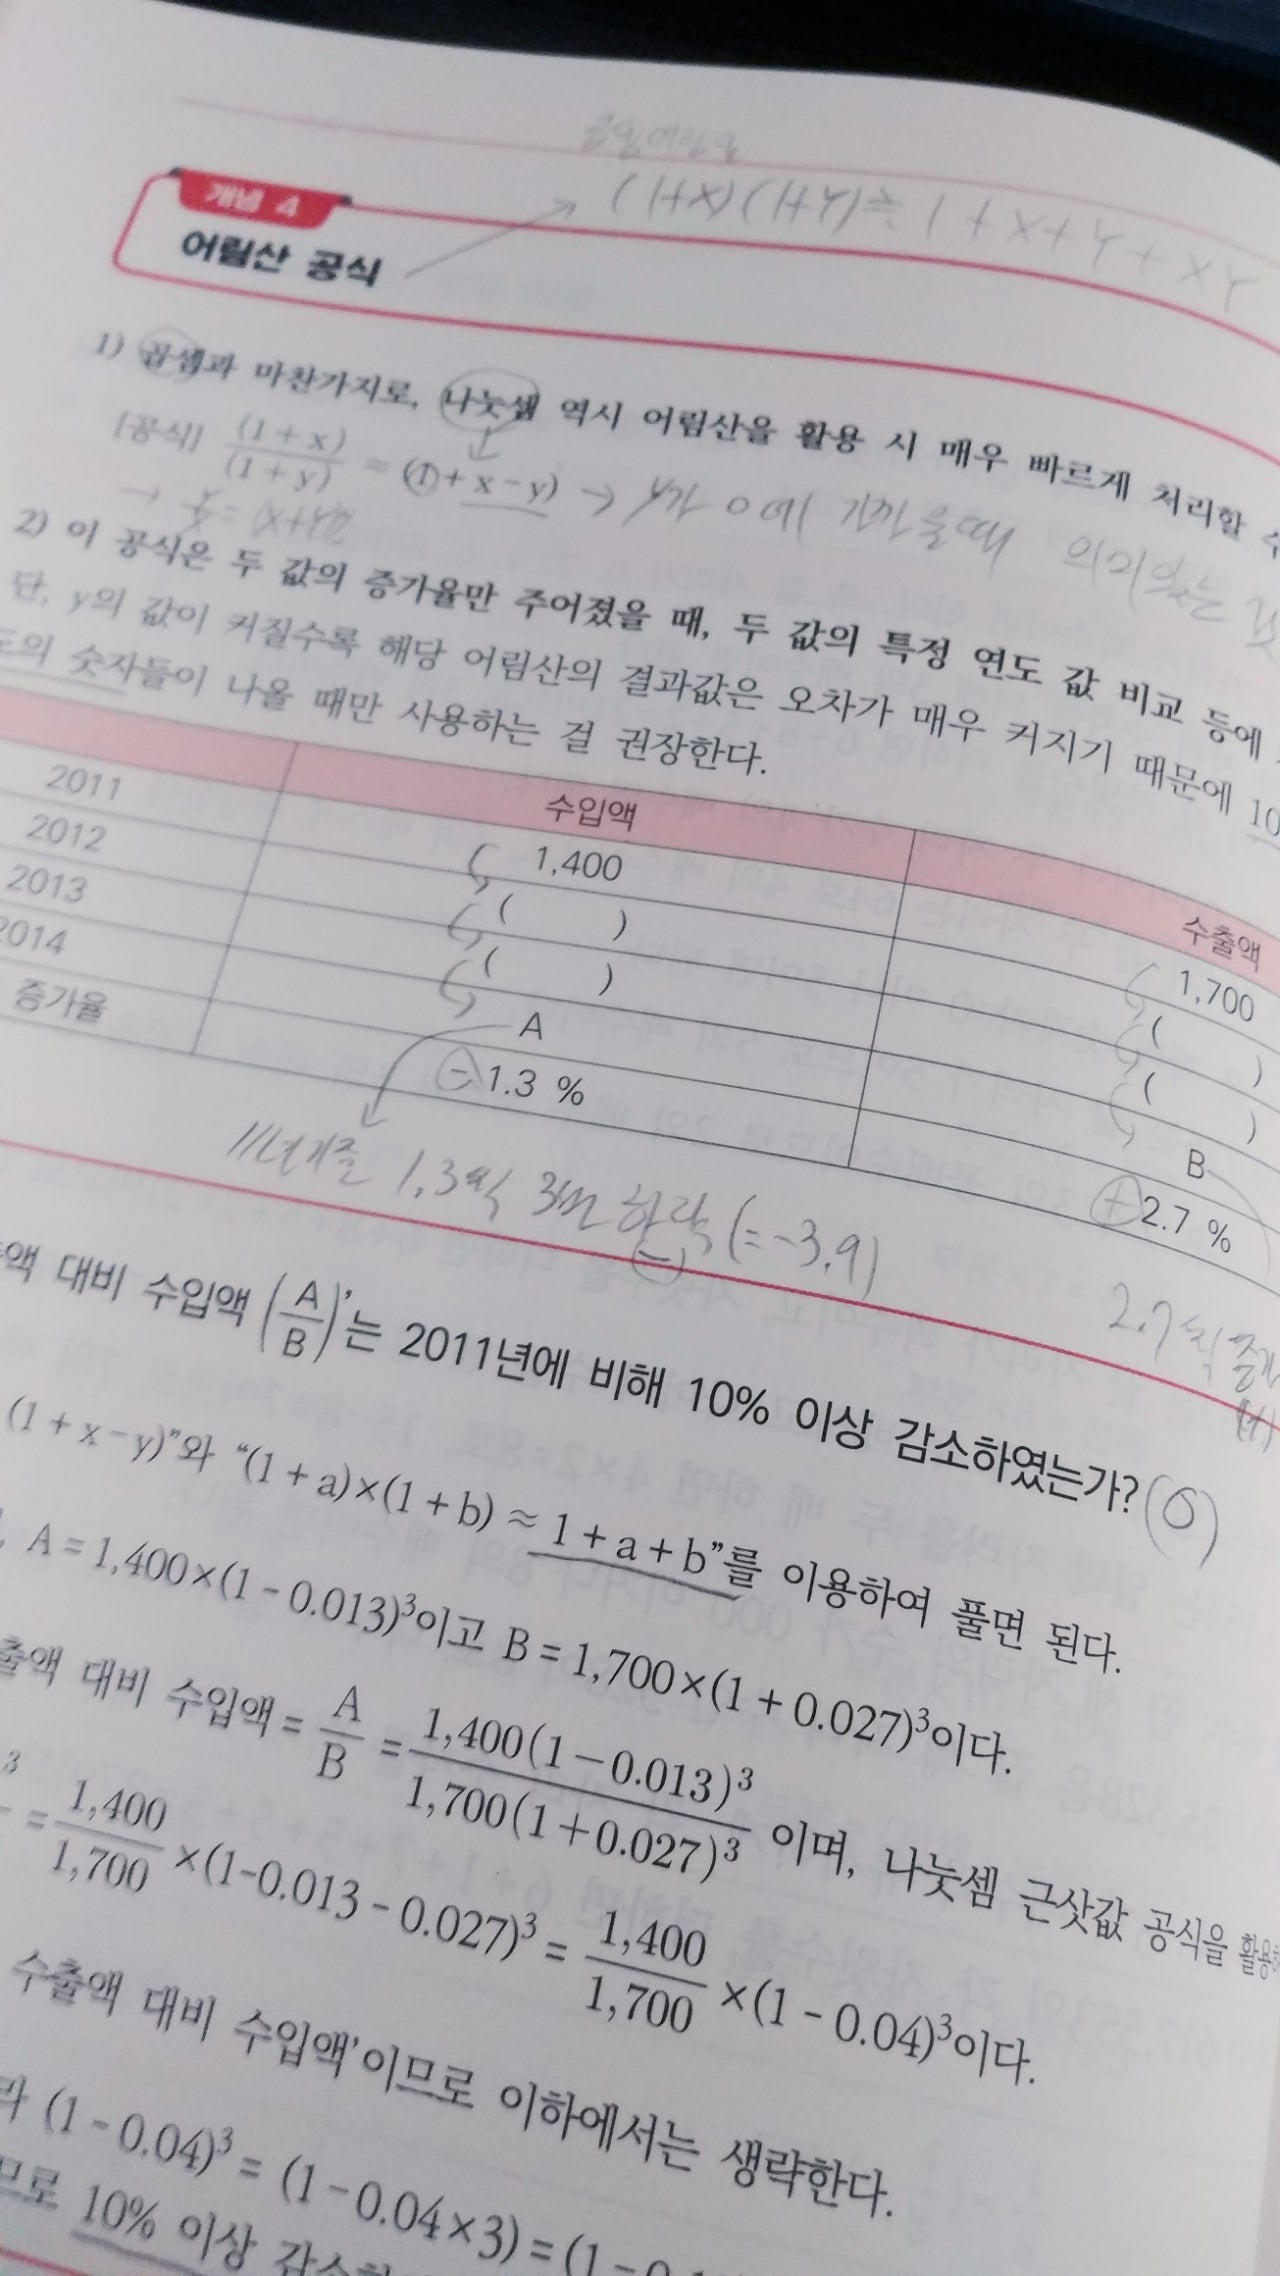 곱셈어림셈
(1+X)(1+Y)≒1+X+Y+XY
개념 4
어림산 공식
1) 곱셈과 마찬가지로, 나눗셈 역시 어림산을 활용 시 매우 빠르게 처리할
[공식] (1+x)/(1+y) ≈ (1+x-y) → y가 0에 가까울때 의미있는
2) 이 공식은 두 값의 증가율만 주어졌을 때, 두 값의 특정 연도 값 비교 등에
단, y의 값이 커질수록 해당 어림산의 결과값은 오차가 매우 커지기 때문에 10
도의 숫자들이 나올 때만 사용하는 걸 권장한다.
수입액 수출액
2011 1,400 1,700
2012 ( ) ( )
2013 ( ) ( )
2014 A B
증가율 -1.3 % +2.7 %
11년기준 1.3씩 3번 하락 (=-3.9)
(-)
2.7씩
(+)
액 대비 수입액(A/B)'는 2011년에 비해 10% 이상 감소하였는가? (O)
(1+x-y)”와 “(1+a)×(1+b)≈1+a+b”를 이용하여 풀면 된다.
A=1,400×(1-0.013)³이고 B=1,700×(1+0.027)³이다.
출액 대비 수입액=A/B=1,400(1-0.013)³/1,700(1+0.027)³이며, 나눗셈 근삿값 공식을
=1,400/1,700×(1-0.013-0.027)³=1,400/1,700×(1-0.04)³이다.
수출액 대비 수입액'이므로 이하에서는 생략한다.
라 (1-0.04)³=(1-0.04×3)=(1-0.
므로 10% 이상